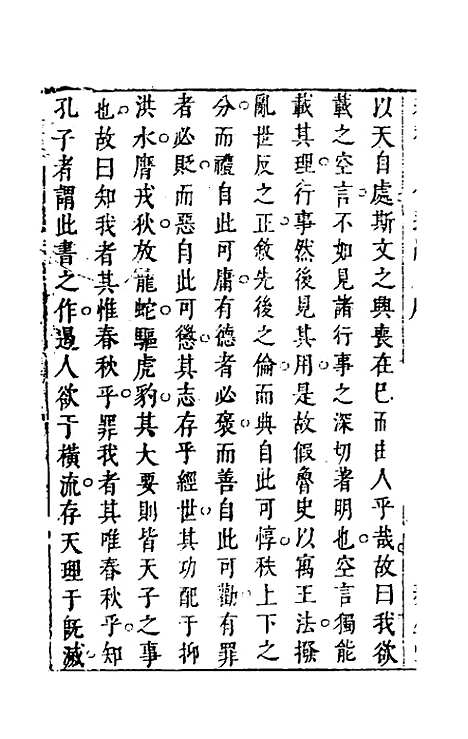 以天自處斯文之興喪在己而由人乎哉故曰我欲
載之空言不如見諸行事之深切著明也空言獨能
載其理行事然後見其用是故假魯史以寓王法撥
亂世反之正敘先後之倫而典自此可惇秩上下之
分而禮自此可庸有德者必褒而善自此可勸有罪
者必貶而惡自此可懲其志存乎經世其功配于抑
洪水膺戎狄放龍蛇驅虎豹其大要則皆天子之事
也故曰知我者其惟春秋乎罪我者其唯春秋乎知
孔子者謂此書之作遏人欲于橫流存天理于旣滅